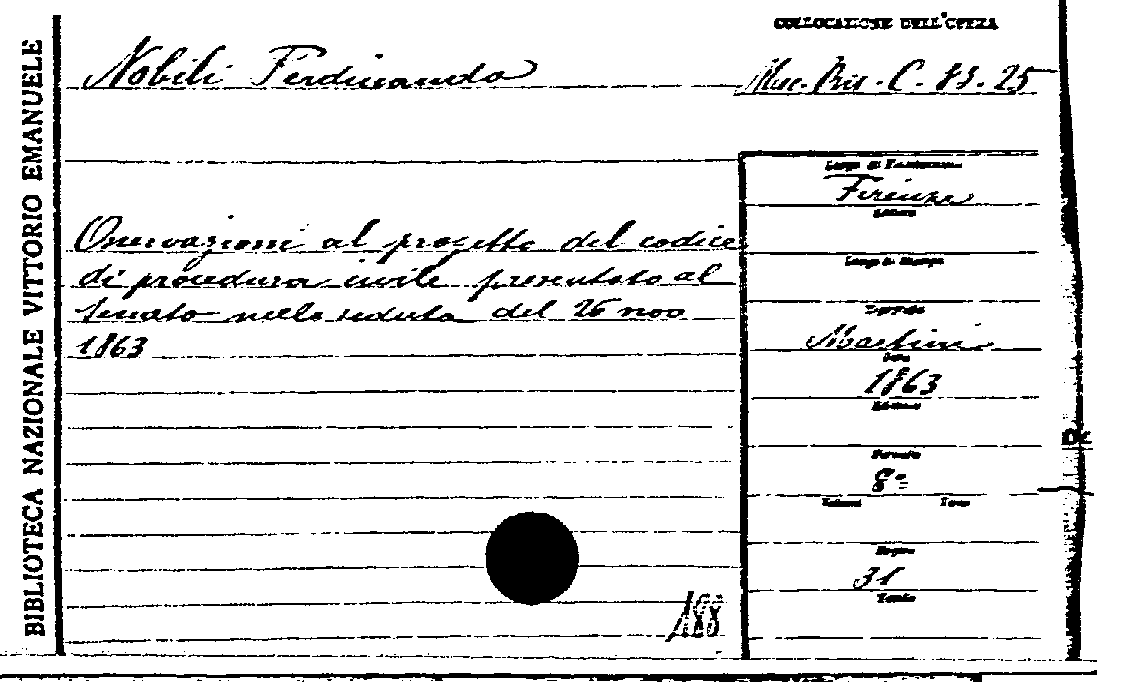 BIBLIOTECA NAZIONALE VITTORIO EMANUELE
COLLOCAZIONE DELL'OPERA
Nobili Ferdinando
Misc. Ris. C. 83. 25
Luogo di Pubblicazione
Firenze
Osservazioni al progetto del codice
di procedura civile presentato al
Senato nella seduta del 26 nov
1863
Luogo di Stampa
Tipografo
Martini
Data
1863
Edizione
Formato
8º
Volumi Tomo
Pagine
31
Tavole
188